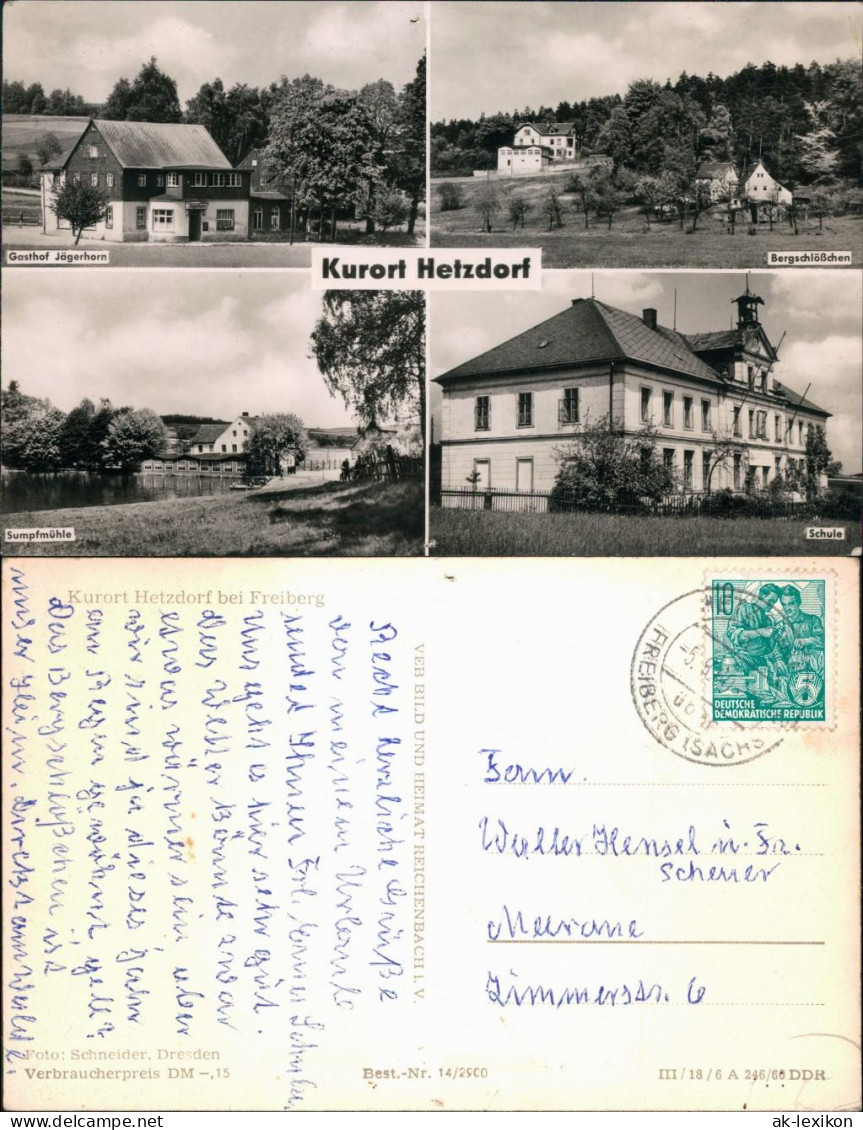 Gasthof Jägerhorn
Bergschlößchen
Kurort Hetzdorf
Sumpfmühle
Schule
Kurort Hetzdorf bei Freiberg
Recht herzliche Grüße
von meinem Urlaub
sendet Ihnen Frl. Erna
Uns geht es hier sehr gut.
Das Wetter könnte zwar
etwas wärmer sein aber
wir sind ja dieses Jahr
an Regen gewöhnt gell?
Das Bergschlößchen ist
unser Heim. Direkt am Wald
VEB BILD UND HEIMAT REICHENBACH I. V.
10
5
DEUTSCHE
DEMOKRATISCHE REPUBLIK
FREIBERG (SACHS
Fam.
Walter Hensel u. Fr.
Scherrer
Meerane
Zimmerstr. 6
Foto: Schneider, Dresden
Verbraucherpreis DM -,15
Best.-Nr. 14/2900
III/18/6 A 246/60 DDR
ak-lexikon